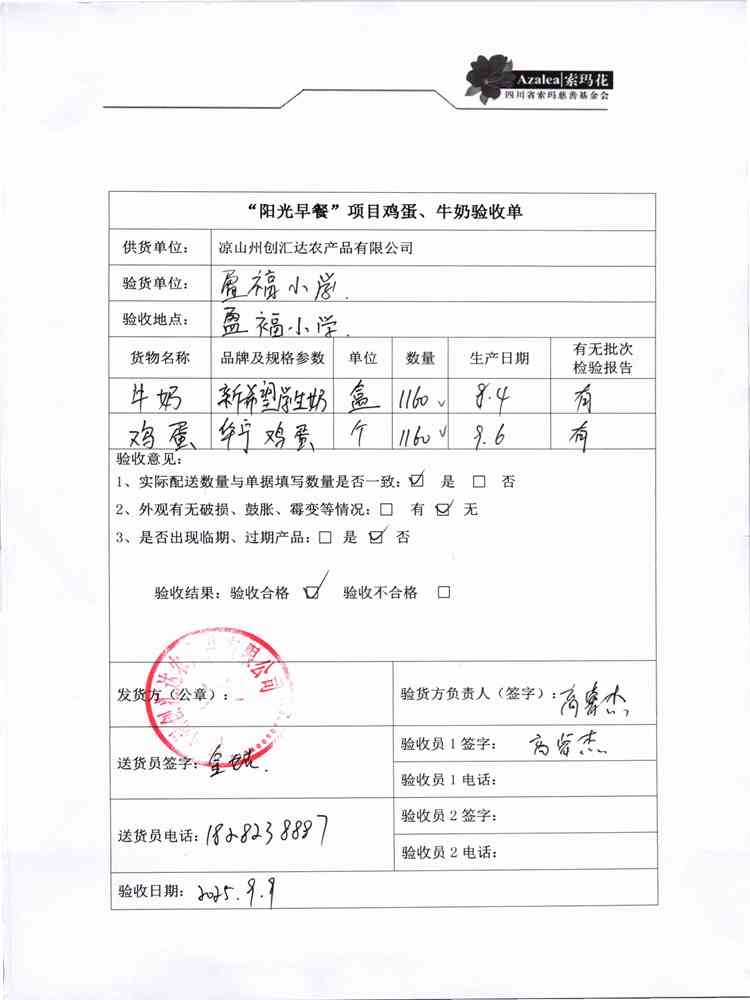 Azalea|索玛花
四川省索玛慈善基金会
“阳光早餐”项目鸡蛋、牛奶验收单
供货单位: 凉山州创汇达农产品有限公司
验货单位: 盈福小学.
验收地点: 盈福小学.
货物名称 品牌及规格参数 单位 数量 生产日期 有无批次检验报告
牛奶 新希望学生奶 盒 1160 8.4 有
鸡蛋 华宁鸡蛋 个 1160 9.6 有
验收意见:
1、实际配送数量与单据填写数量是否一致: ☑ 是 □ 否
2、外观有无破损、鼓胀、霉变等情况: □ 有 ☑ 无
3、是否出现临期、过期产品: □ 是 ☑ 否
验收结果: 验收合格 ☑ 验收不合格 □
发货方(公章): 验货方负责人(签字):
送货员签字: 验收员1签字:
验收员1电话:
送货员电话: 验收员2签字:
验收员2电话:
验收日期: 2025.9.9